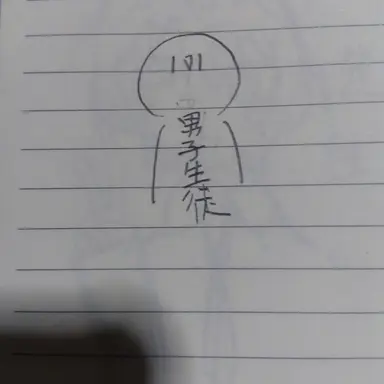 男子生徒